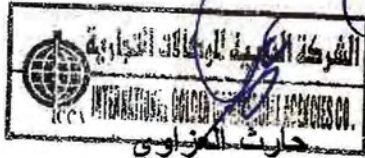 الشركة الذهبية للوكالات التجارية
INTERNATIONAL GOLDEN AGENCIES CO.
حارث العزاوي